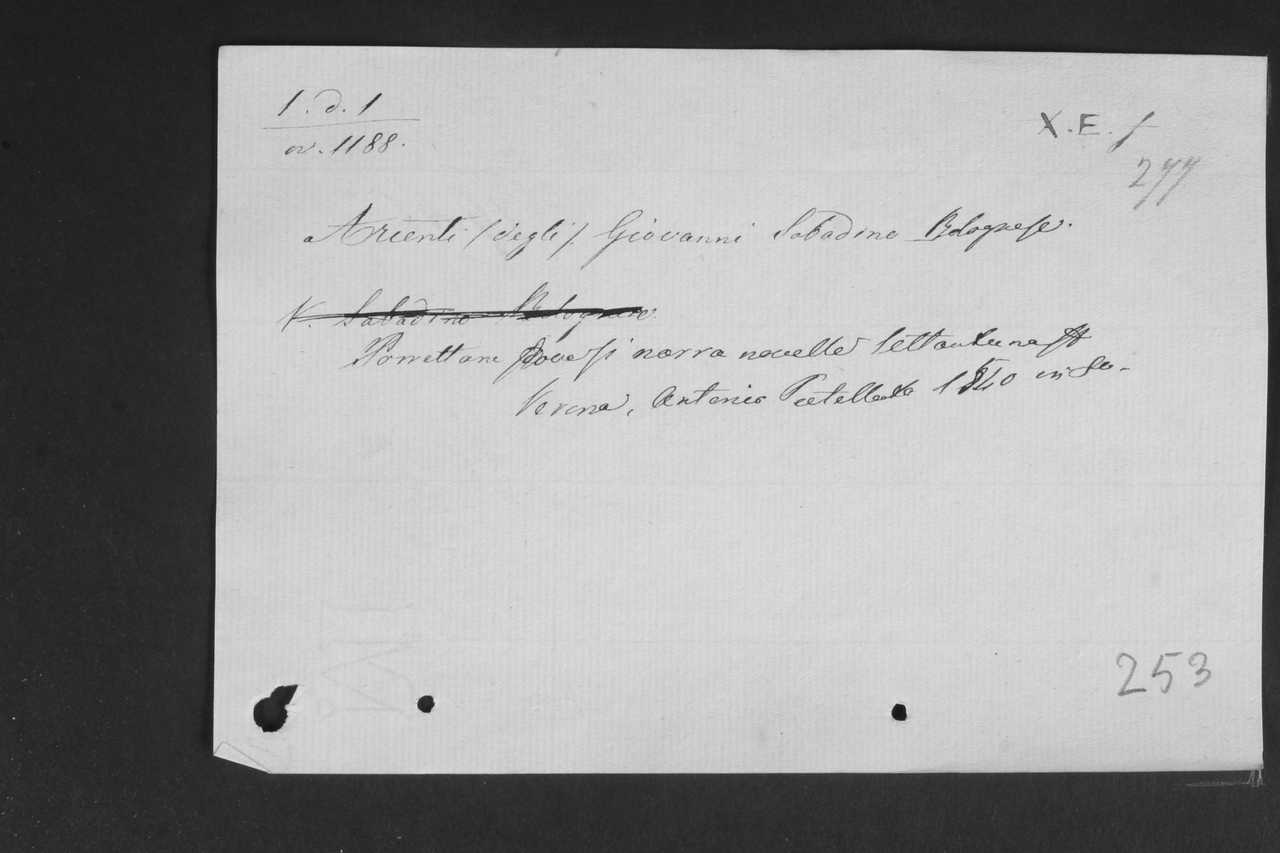 1. d. 1
or. 1188.
X. E. f
277
Arienti /degli/ Giovanni Sabadino Bolognese.
V. Sabadino Bolognese
Porrettane dove si narra novelle settantuna
Verona, Antonio 1540 in 8o-
253